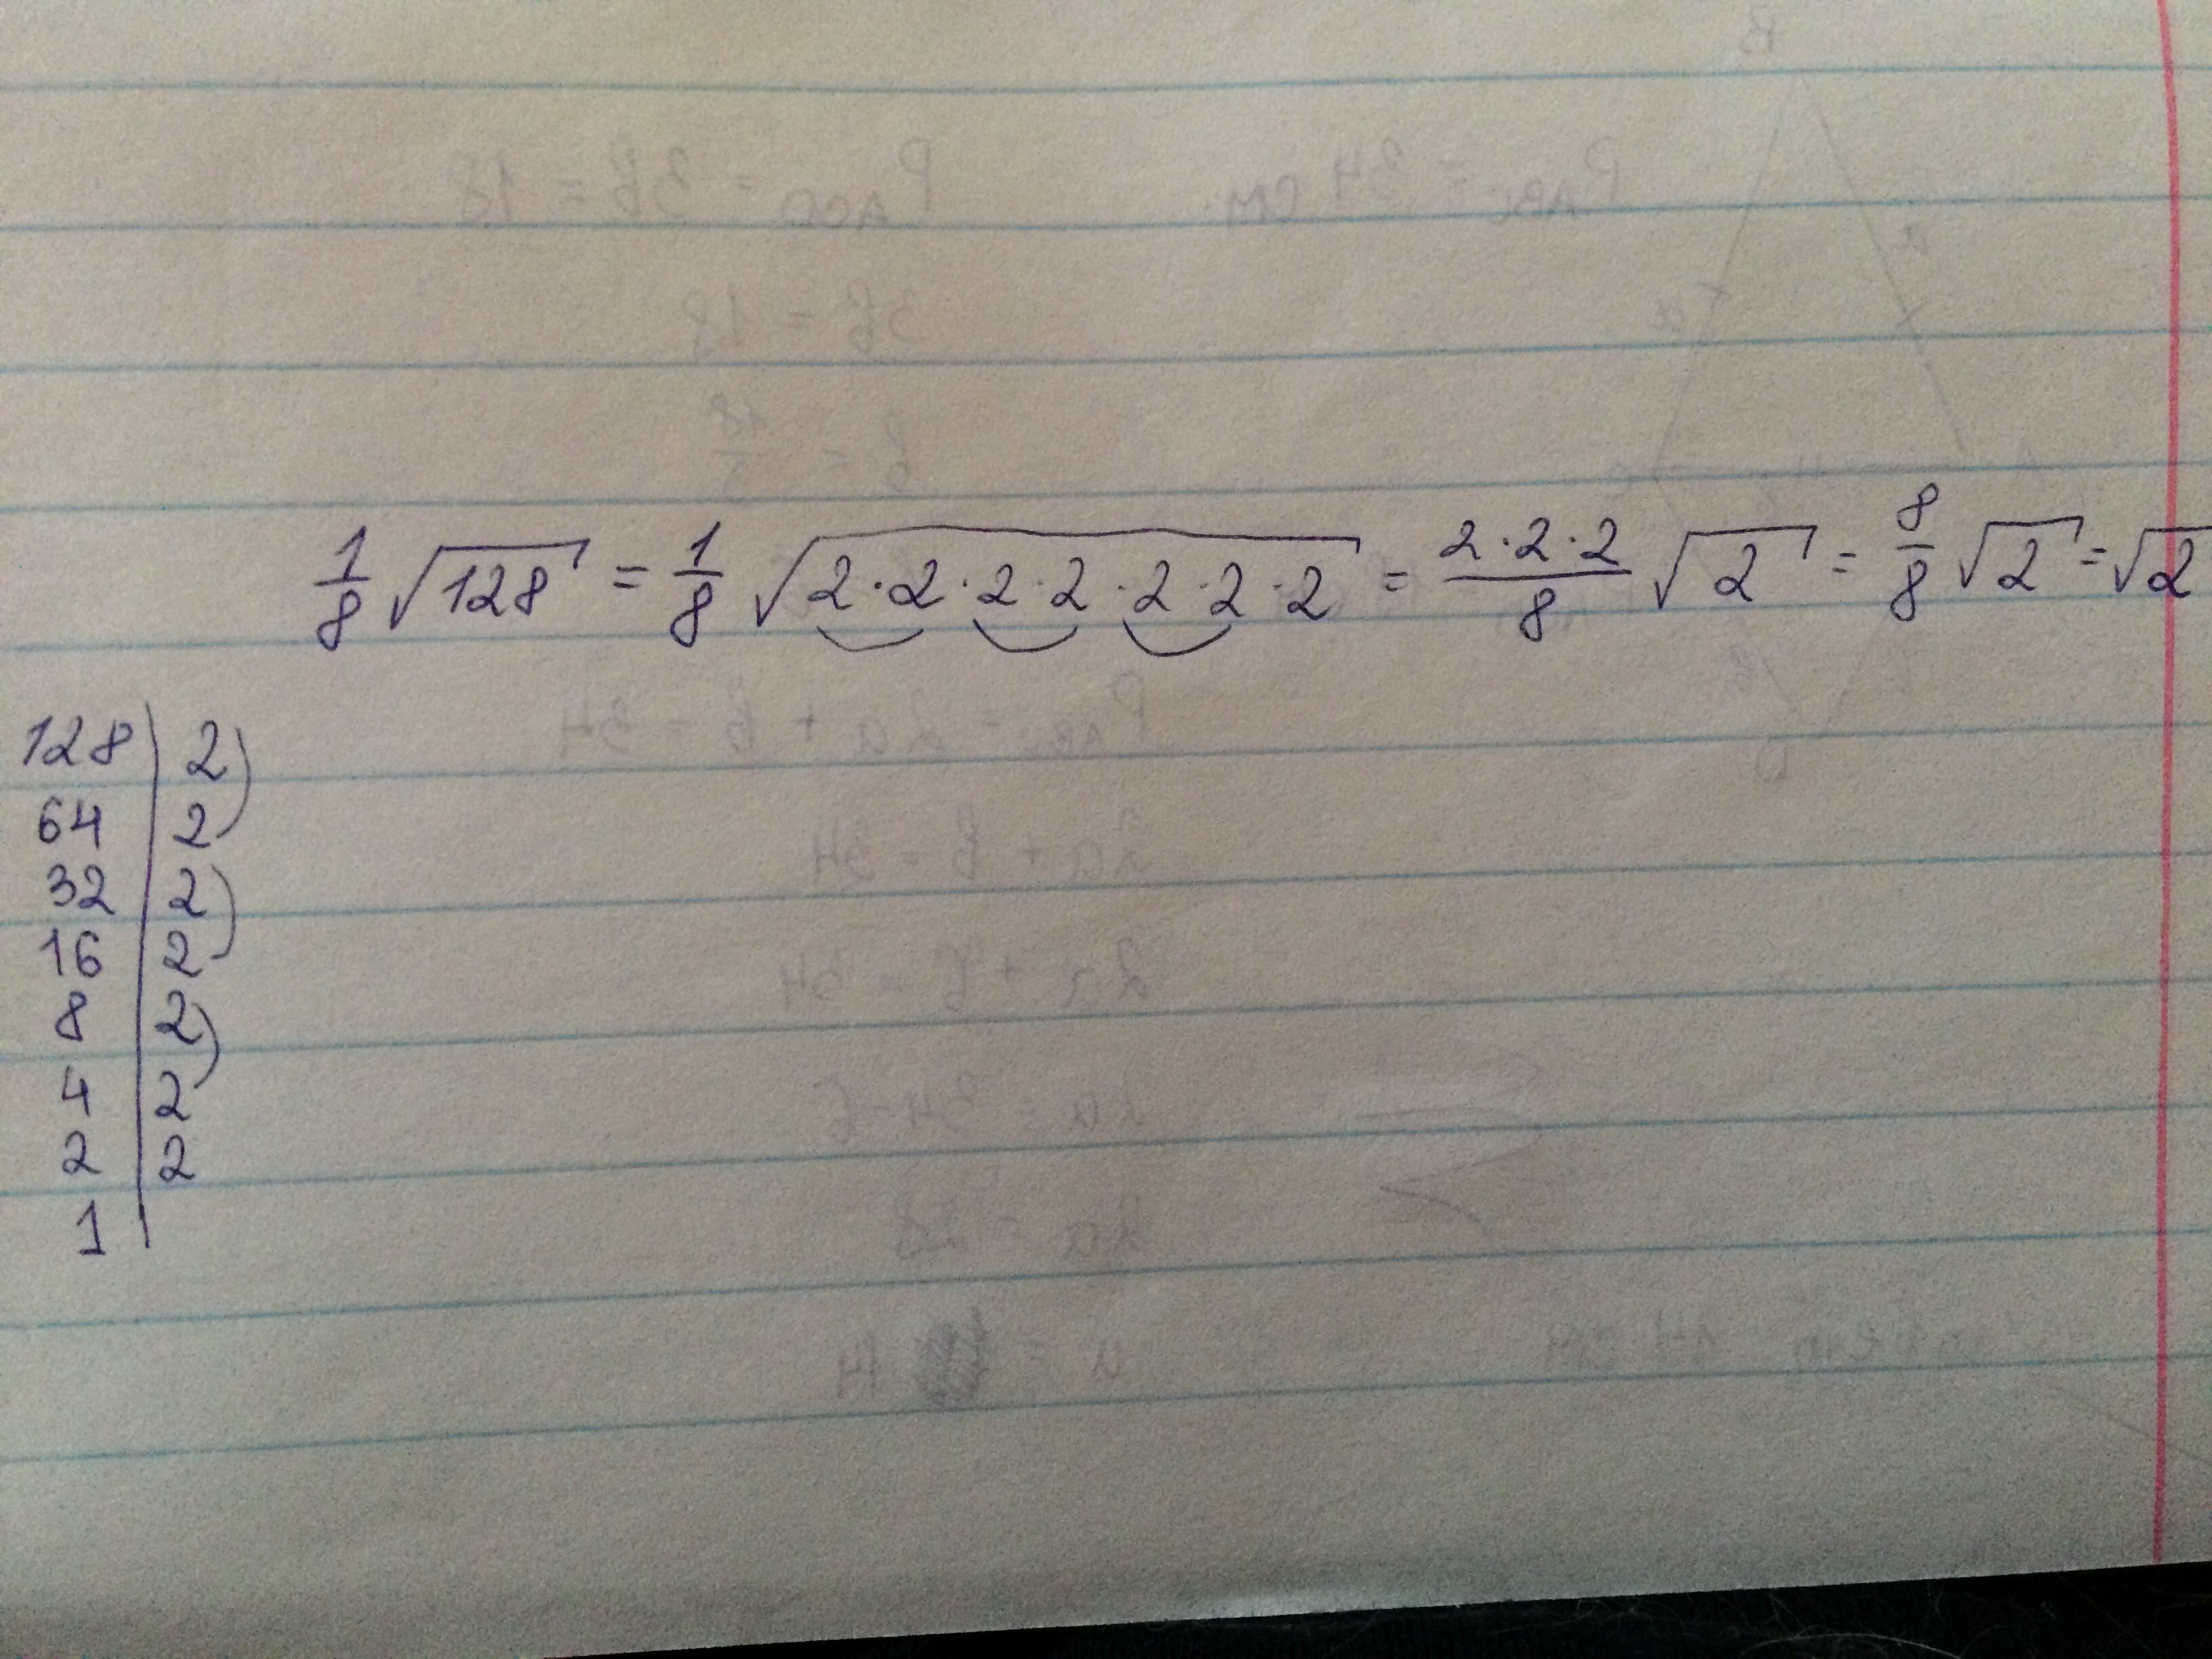 1/8 √128 = 1/8 √2·2·2·2·2·2·2 = 2·2·2/8 √2 = 8/8 √2 = √2
128 | 2
64 | 2
32 | 2
16 | 2
8 | 2
4 | 2
2 | 2
1 |